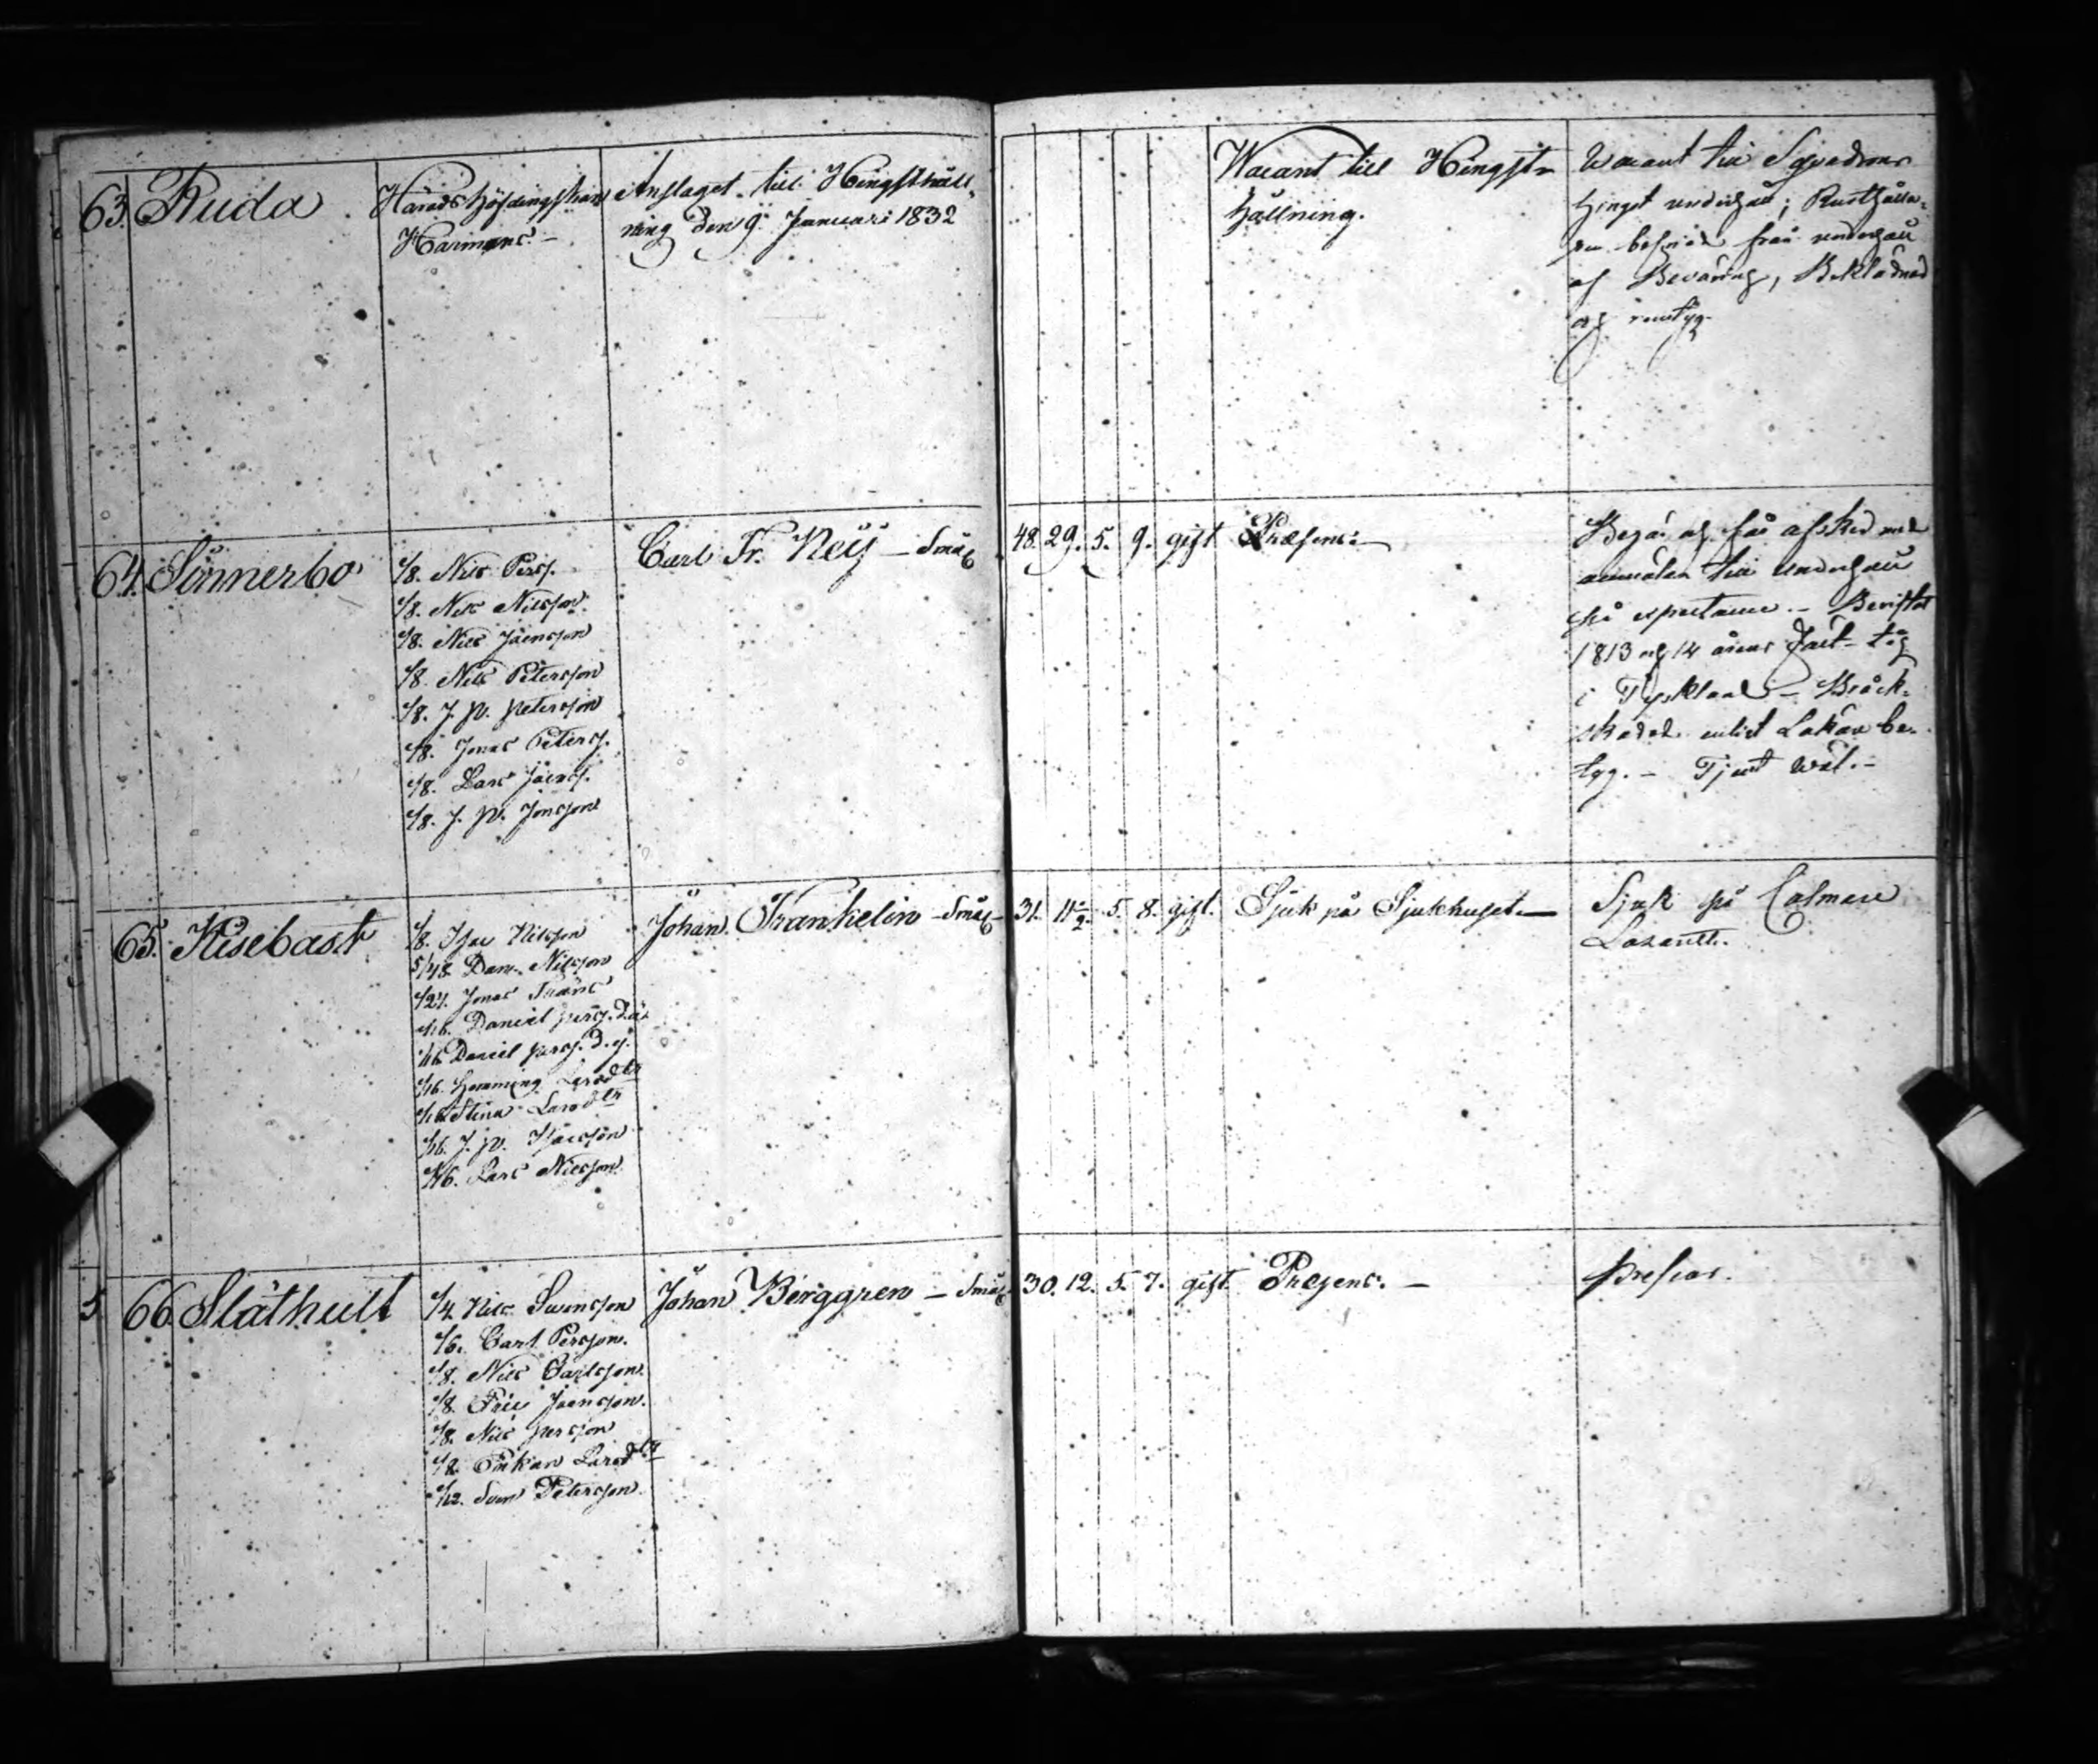 63. Ruda
Häradshöfdingskan
Harmens.
Anslaget till Hingsthåll-
ning den 9. Januari 1832
Wacant till Hingst-
hållning.
Wacant till Squadrons
hingst underhåll; Rusthålla-
ren befriad från underhåll
af Bevaring, Beklädnad
och remtyg.
64. Sönnerbo
1/8. Nils Pers.
1/8. Nils Nilsson.
1/8. Nils Jaensson
1/8. Nils Petersson
1/8. J. P. Petersson
1/8. Jonas Peters.
1/8. Lars Jaens.
1/8. J. P. Jonsson
Carl Fr. Reij – Smål
48. 29. 5. 9. gift Præsens. –
Begär och får afsked med
anmälan till underhåll
på expectance. – Bevistat
1813 och 14 årens fält-tåg
i Tyskland – Bråck-
skadad enligt Läkare be-
tyg. – Tjent wäl. –
65. Kisebast
1/8. Isac Nilsson
5/48. Dan. Nilsson
1/24. Jonas Frans
1/16. Daniel Pers. d.ä.
1/16. Daniel Pers. d.y.
1/16. Hemming Larsdtr
1/16. Stina Larsdtr
1/16. J. P. Isacsson
1/16. Lars Nilsson.
Johan Frankelin – Smål
31. 11 1/2 5. 8. gift. Sjuk på Sjukhuset. –
Sjuk på Calmare
Lazarett.
5 66. Släthult
1/4. Nils Swensson
1/6. Carl Persson.
1/8. Nils Carlsson.
1/8. Pehr Jaensson.
1/8. Nils Persson
1/8. Enkan Larsdtr
1/12. Swen Petersson.
Johan Berggren – Smål
30. 12. 5. 7. gift. Præsens. –
Presens.